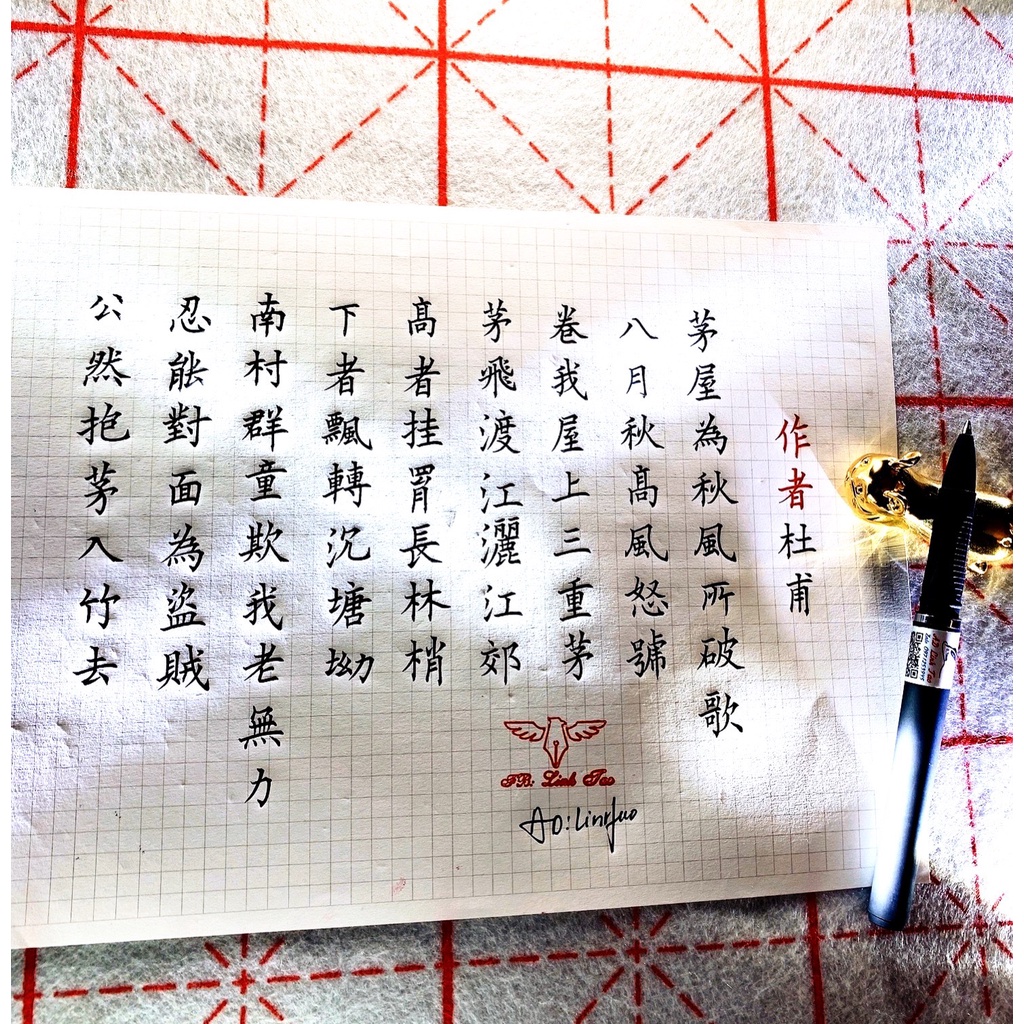 作者杜甫
茅屋為秋風所破歌
八月秋髙風怒號
卷我屋上三重茅
茅飛渡江灑江郊
髙者挂罥長林梢
下者飄轉沉塘坳
南村群童欺我老無力
忍能對面為盜賊
公然抱茅入竹去
FB: Linh Tao